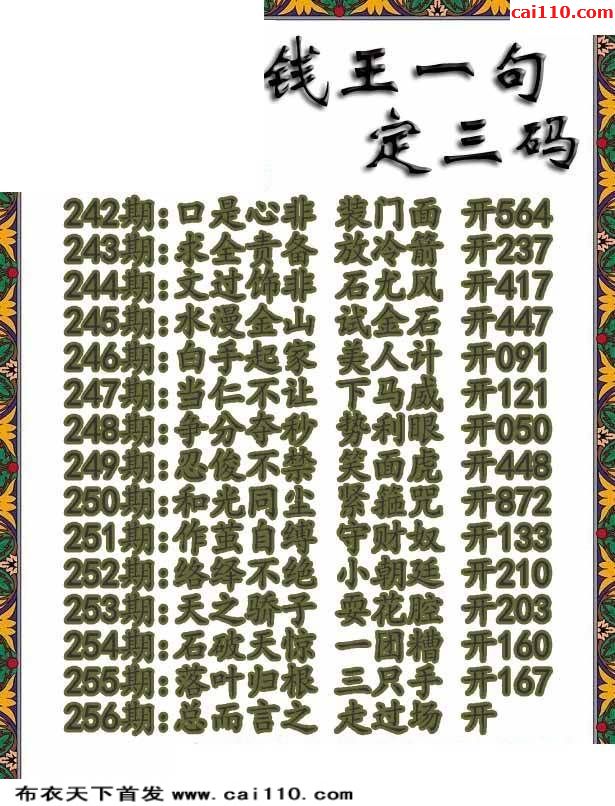 cai110.com
钱王一句
定三码
242期:口是心非 装门面 开564
243期:求全责备 放冷箭 开237
244期:文过饰非 石尤风 开417
245期:水漫金山 试金石 开447
246期:白手起家 美人计 开091
247期:当仁不让 下马威 开121
248期:争分夺秒 势利眼 开050
249期:忍俊不禁 笑面虎 开448
250期:和光同尘 紧箍咒 开872
251期:作茧自缚 守财奴 开133
252期:络绎不绝 小朝廷 开210
253期:天之骄子 耍花腔 开203
254期:石破天惊 一团糟 开160
255期:落叶归根 三只手 开167
256期:总而言之 走过场 开
布衣天下首发 www.cai110.com